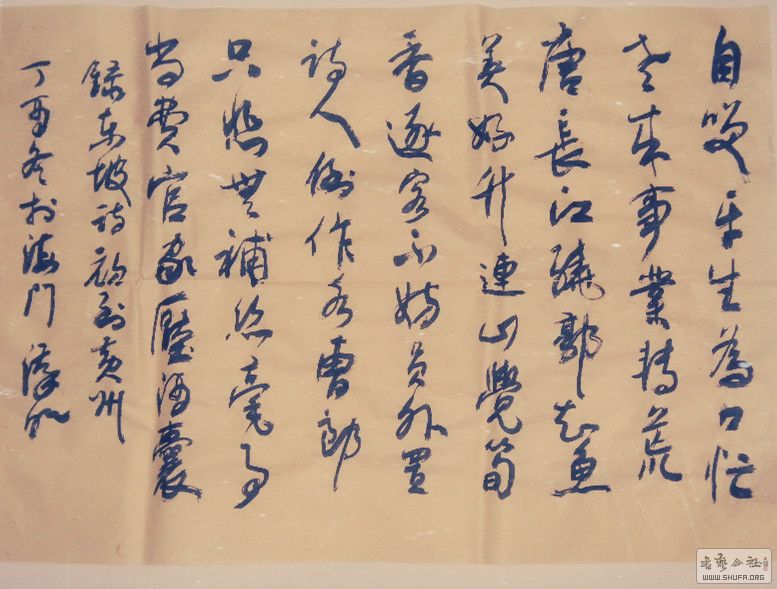 自咲平生為口忙
老來事業轉荒
唐長江繞郭知魚
美好竹連山覺筍
香逐客不妨員外置
詩人例作水曹郎
只慚無補絲毫事
尚費官家壓酒囊
錄東坡詩初到黃州
丁酉冬於海門
書藝公社
WWW.SHUFA.ORG